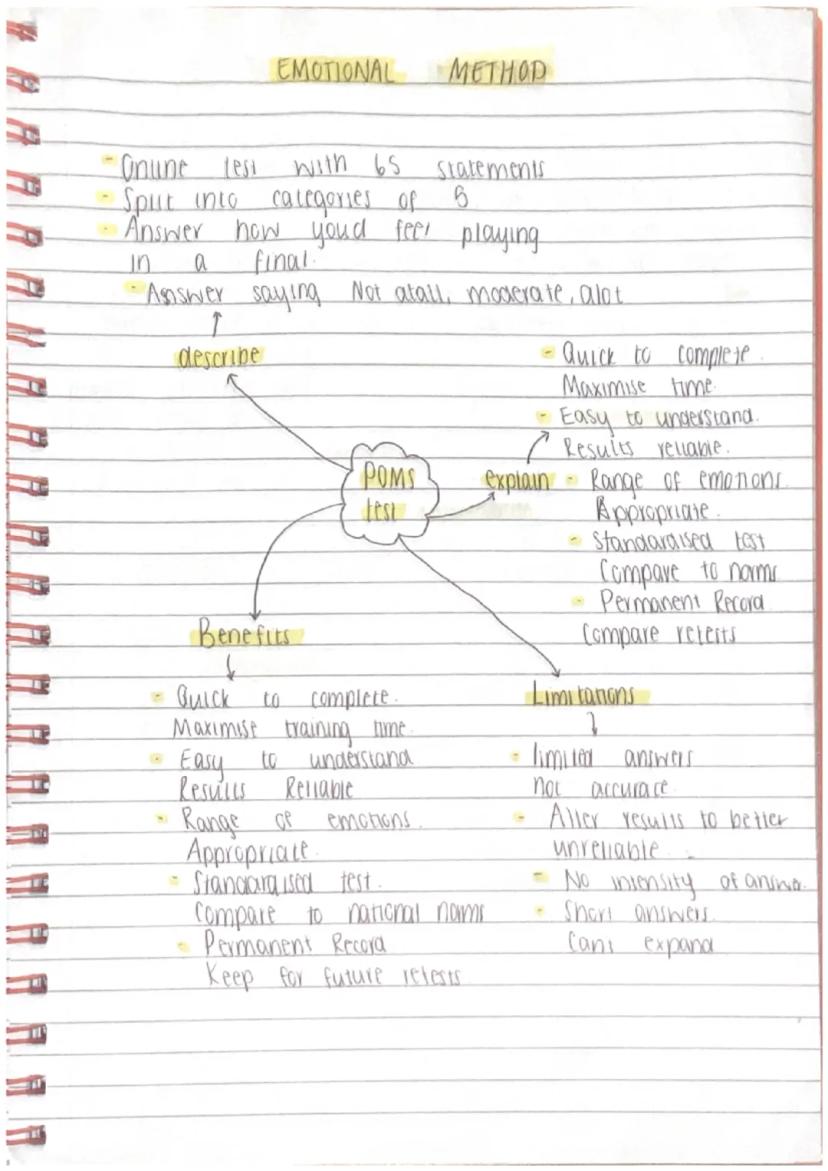 EMOTIONAL METHOD
- Online test with 65 statements
- Split into categories of 5
- Answer how youd feel playing
in a final.
- Answer saying Not atall, moderate, alot
describe
- Quick to complete.
Maximise time.
- Easy to understand.
Results reliable.
explain
- Range of emotions.
Appropriate.
- Standardised test
Compare to norms
- Permanent Record
Compare retests
POMS
test
Benefits
- Quick to complete.
Maximise training time.
- Easy to understand
Results Reliable
- Range of emotions.
Appropriate.
- Standardised test.
Compare to national norms
- Permanent Record
Keep for future retests
Limitations
- limited answers
not accurate.
- Alter results to better
unreliable.
- No intensity of answer.
- Short answers.
Cant expand